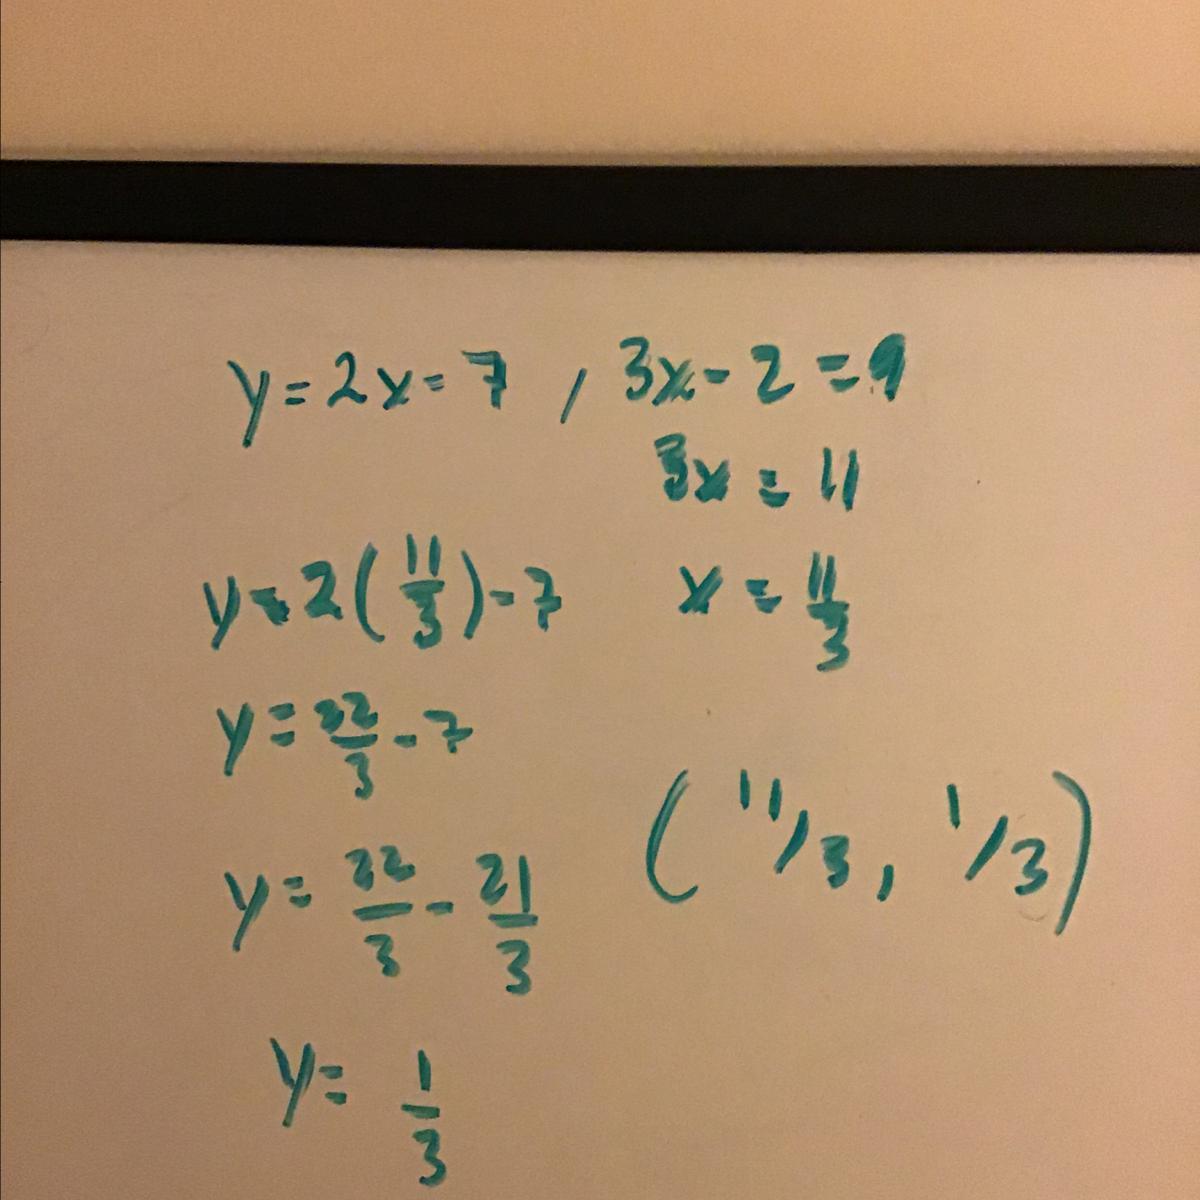 y = 2x - 7 , 3x - 2 = 9
3x = 11
y = 2(11/3) - 7
x = 11/3
y = 22/3 - 7
y = 22/3 - 21/3
(11/3, 1/3)
y = 1/3